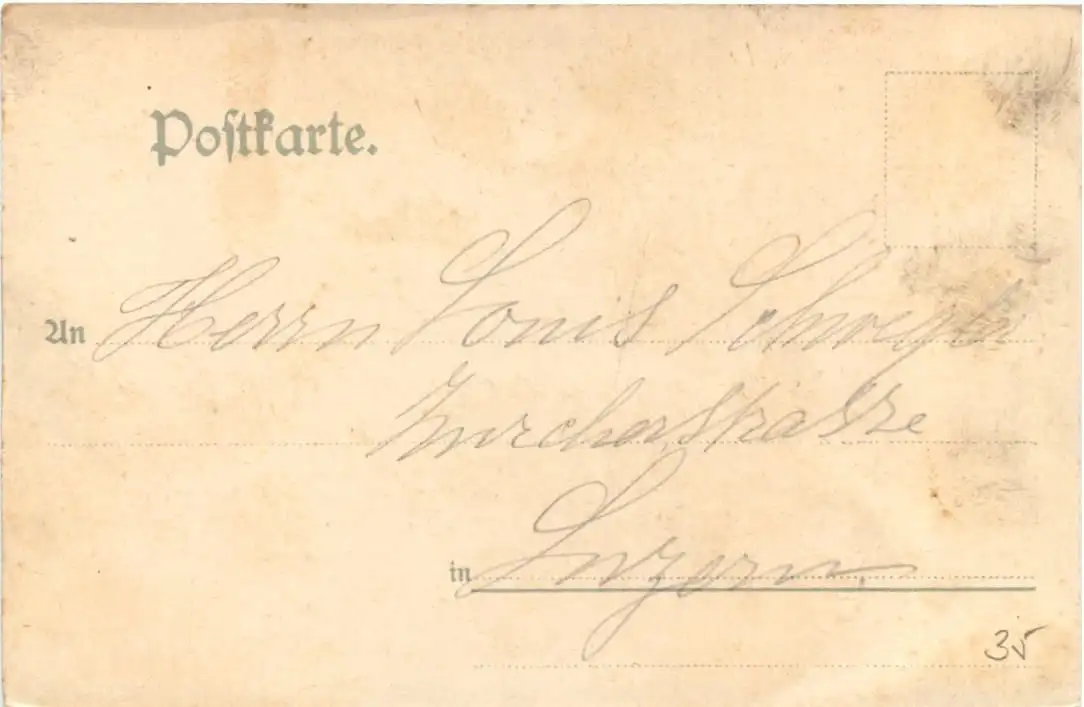 Postkarte.
An Herrn Louis
Zürcherstrasse
in Luzern.
35